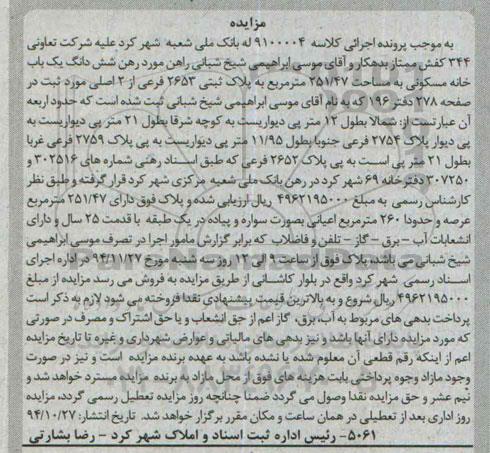 مزایده
به موجب پرونده اجرائی کلاسه ۹۱۰۰۰۰۴ له بانک ملی شعبه شهر کرد علیه شرکت تعاونی
۳۴۴ کفش ممتاز بدهکار و آقای موسی ابراهیمی شیخ شبانی راهن مورد رهن شش دانگ یک باب
خانه مسکونی به مساحت ۲۵۱/۴۷ مترمربع به پلاک ثبتی ۲۶۵۳ فرعی از ۲ اصلی مورد ثبت در
صفحه ۲۷۸ دفتر ۱۹۶ که به نام آقای موسی ابراهیمی شیخ شبانی ثبت شده است که حدود اربعه
آن عبارتست از: شمالا بطول ۱۲ متر پی دیواریست به کوچه شرقا بطول ۲۱ متر پی دیواریست به
پی دیوار پلاک ۲۷۵۴ فرعی جنوبا بطول ۱۱/۹۵ متر پی دیواریست به پی پلاک ۲۷۵۹ فرعی غربا
بطول ۲۱ متر پی است به پی پلاک ۲۶۵۲ فرعی که طبق اسناد رهنی شماره های ۳۰۲۵۱۶ و
۳۰۷۲۵۰ دفترخانه ۶۹ شهر کرد در رهن بانک ملی شعبه مرکزی شهر کرد قرار گرفته و طبق نظر
کارشناس رسمی به مبلغ ۴۹۶۲۱۹۵۰۰۰ ریال ارزیابی شده و پلاک فوق دارای ۲۵۱/۴۷ مترمربع
عرصه و حدودا ۲۶۰ مترمربع اعیانی بصورت سواره و پیاده در یک طبقه با قدمت ۲۵ سال و دارای
انشعابات آب - برق - گاز - تلفن و فاضلاب که برابر گزارش مامور اجرا در تصرف موسی ابراهیمی
شیخ شبانی می باشد، پلاک فوق از ساعت ۹ الی ۱۲ روز سه شنبه مورخ ۹۴/۱۱/۲۷ در اداره اجرای
اسناد رسمی شهر کرد واقع در بلوار کاشانی از طریق مزایده به فروش می رسد مزایده از مبلغ
۴۹۶۲۱۹۵۰۰۰ ریال شروع و به بالاترین قیمت پیشنهادی نقدا فروخته می شود لازم به ذکر است
پرداخت بدهی های مربوط به آب، برق، گاز اعم از حق انشعاب و یا حق اشتراک و مصرف در صورتی
که مورد مزایده دارای آنها باشد و نیز بدهی های مالیاتی و عوارض شهرداری و غیره تا تاریخ مزایده
اعم از اینکه رقم قطعی آن معلوم شده یا نشده باشد به عهده برنده مزایده است و نیز در صورت
وجود مازاد وجوه پرداختی بابت هزینه های فوق از محل مازاد به برنده مزایده مسترد خواهد شد و
نیم عشر و حق مزایده نقدا وصول می گردد ضمنا چنانچه روز مزایده تعطیل رسمی گردد، مزایده
روز اداری بعد از تعطیلی در همان ساعت و مکان مقرر برگزار خواهد شد. تاریخ انتشار: ۹۴/۱۰/۲۷
۵۰۶۱- رئیس اداره ثبت اسناد و املاک شهر کرد - رضا بشارتی